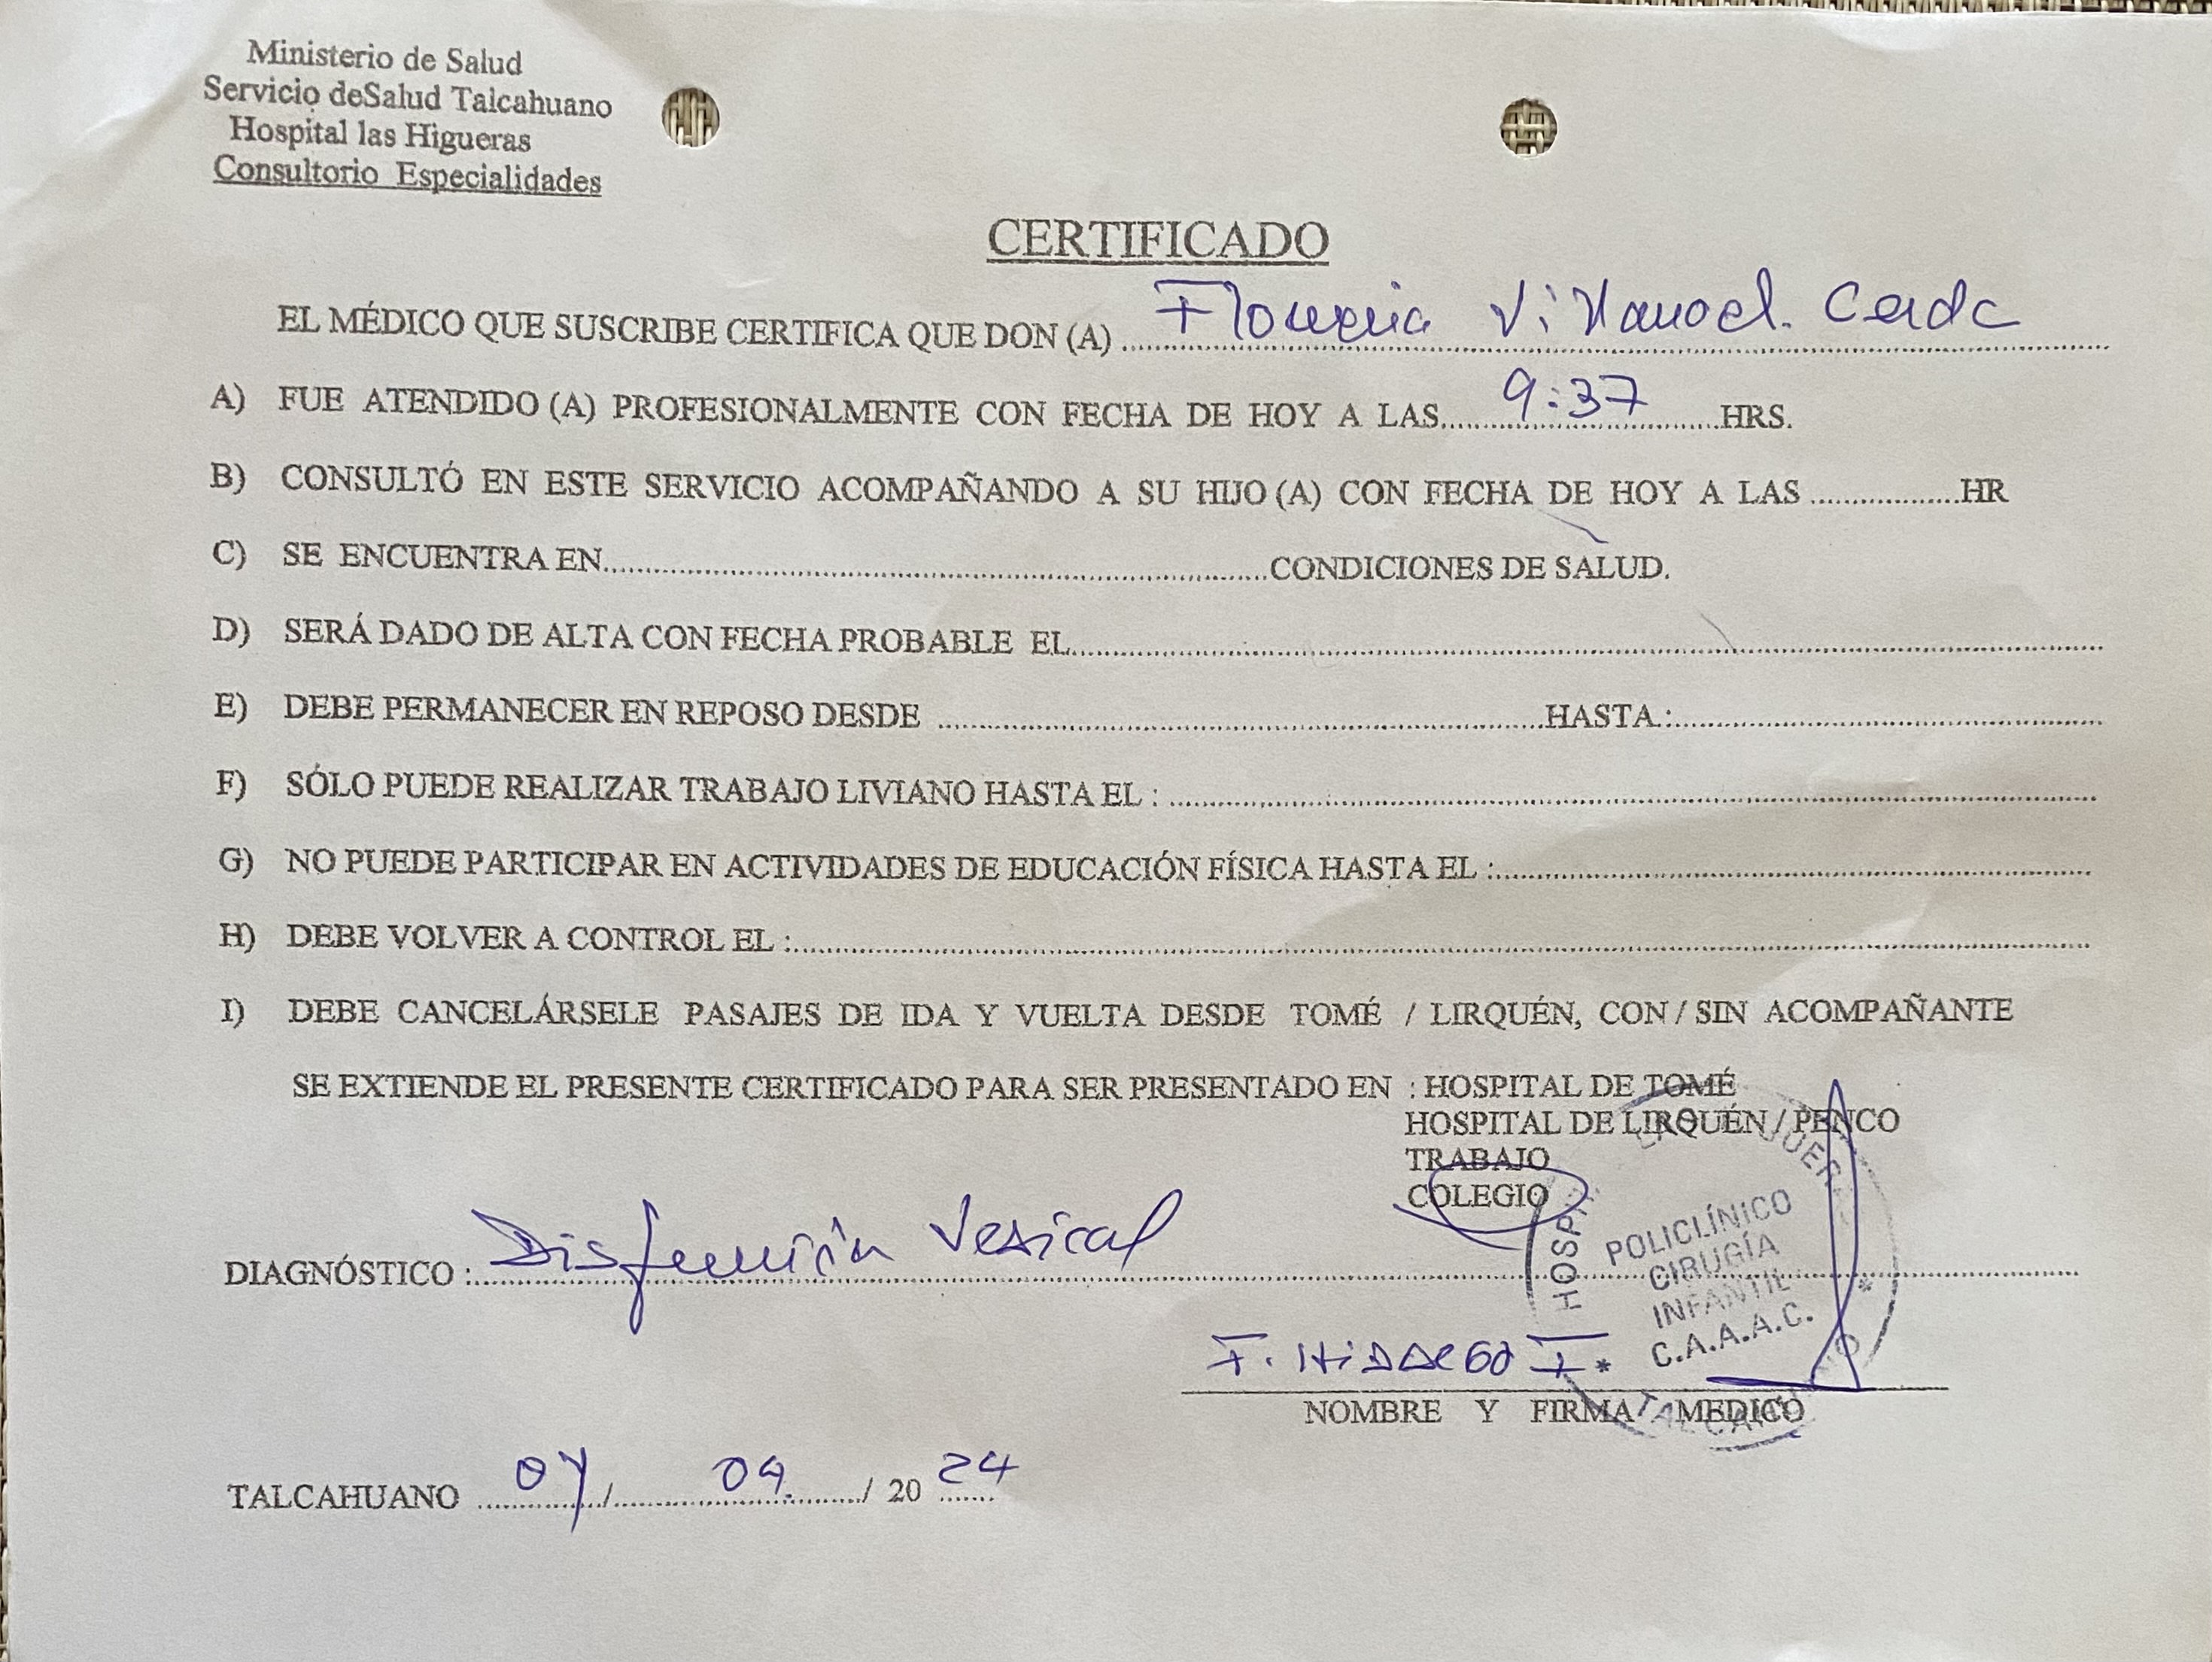 Ministerio de Salud
Servicio deSalud Talcahuano
Hospital las Higueras
Consultorio Especialidades
CERTIFICADO
EL MÉDICO QUE SUSCRIBE CERTIFICA QUE DON (A) Cerda
A) FUE ATENDIDO (A) PROFESIONALMENTE CON FECHA DE HOY A LAS 9:37 HRS.
B) CONSULTÓ EN ESTE SERVICIO ACOMPAÑANDO A SU HIJO (A) CON FECHA DE HOY A LAS HR
C) SE ENCUENTRA EN CONDICIONES DE SALUD.
D) SERÁ DADO DE ALTA CON FECHA PROBABLE EL
E) DEBE PERMANECER EN REPOSO DESDE HASTA.:
F) SÓLO PUEDE REALIZAR TRABAJO LIVIANO HASTA EL :
G) NO PUEDE PARTICIPAR EN ACTIVIDADES DE EDUCACIÓN FÍSICA HASTA EL :
H) DEBE VOLVER A CONTROL EL :
I) DEBE CANCELÁRSELE PASAJES DE IDA Y VUELTA DESDE TOMÉ / LIRQUÉN, CON / SIN ACOMPAÑANTE
SE EXTIENDE EL PRESENTE CERTIFICADO PARA SER PRESENTADO EN : HOSPITAL DE TOMÉ
HOSPITAL DE LIRQUÉN / PENCO
TRABAJO
COLEGIO
POLICLÍNICO
CIRUGÍA
INFANTIL
C.A.A.A.C.
DIAGNÓSTICO : Disfunción Vesical
F. Hidalgo F.
NOMBRE Y FIRMA MEDICO
TALCAHUANO / / 20 24